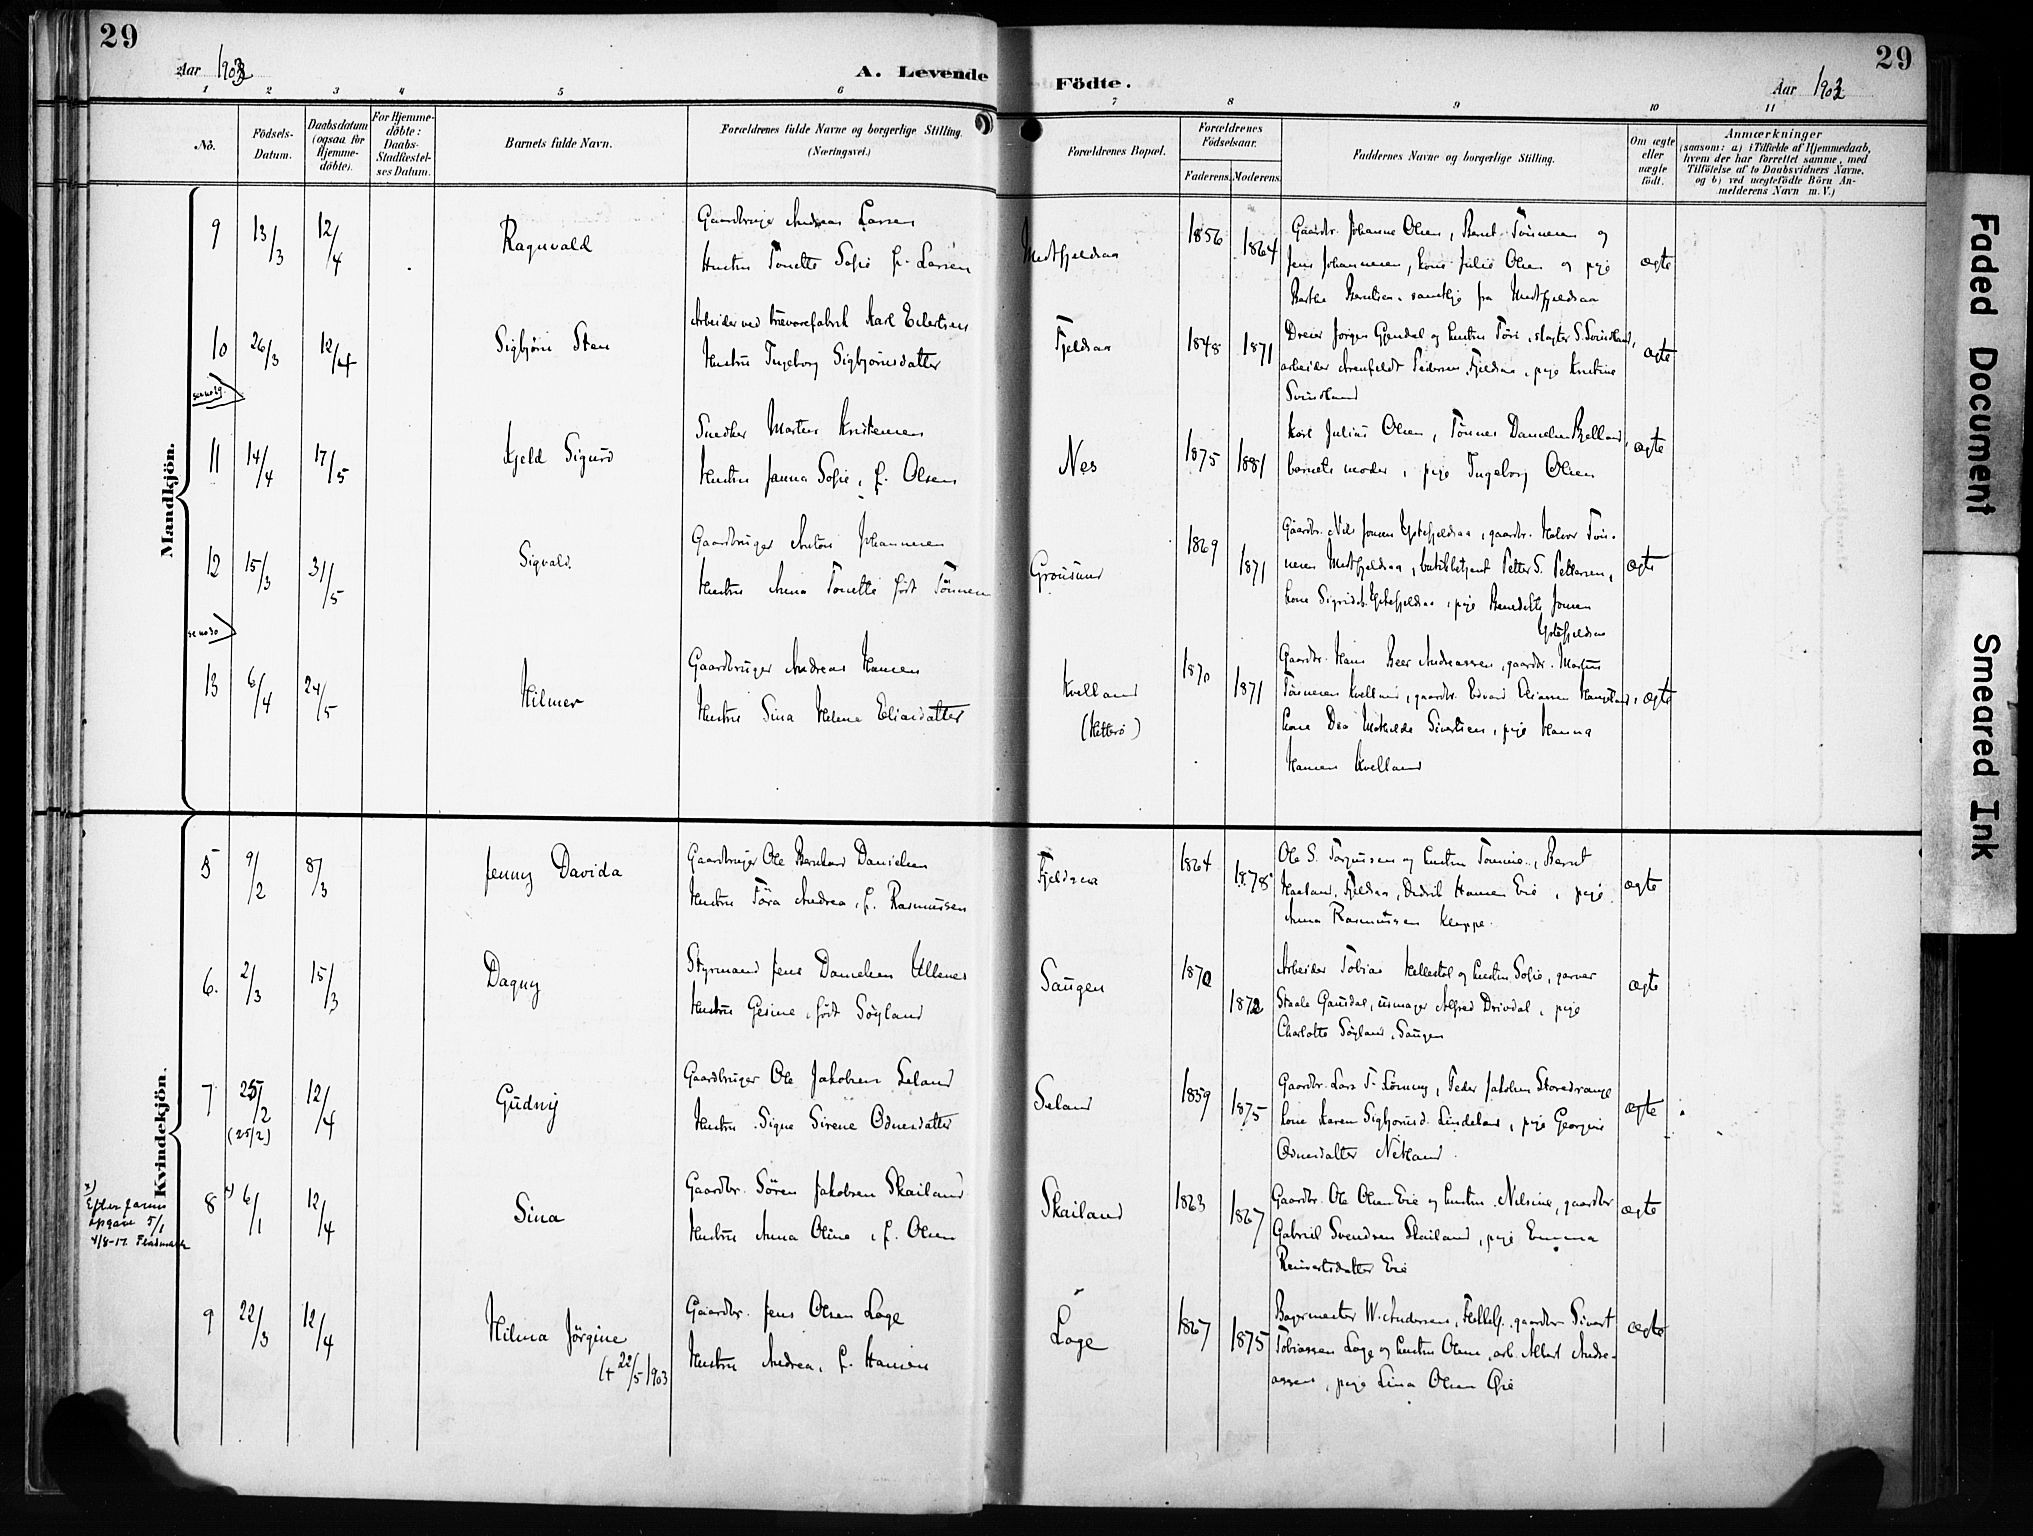 29
29
Aar 1903
A. Levende Födte.
Aar 1903
1 2 3 4 5 6 7 8 9 10 11
No.
Födsels-
Datum.
Daabsdatum
(ogsaa for
Hjemme-
döbte).
For Hjemme-
döbte:
Daabs-
Stadfæstel-
ses Datum.
Barnets fulde Navn.
Forældrenes fulde Navne og borgerlige Stilling.
(Næringsvei.)
Forældrenes Bopæl.
Forældrenes
Födselsaar.
Faderens. Moderens.
Faddernes Navne og borgerlige Stilling.
Om ægte
eller
uægte
født.
Anmærkninger
(saasom: a) i Tilfælde af Hjemmedaab,
hvem der har forrettet samme, med
Tilföielse af to Daabsvidners Navne,
og b) ved uægtefödte Börn An-
melderens Navn m. V.)
Mandkjön.
9 13/3 12/4 Ragnvald
Gaardbruger Andreas Larsen
Hustru Tonette Sofie f. Larsen
1856 1864
Gaardbr. Johannes Olsen, Bernt Tönnesen og
Jens Johannesen, kone Julie Olsen og pige
Berthe Berntsen, samtlige fra Midtfjeldsaa
ægte
10 26/3 12/4 Sigbjörn Sten
Arbeider ved trævarefabrik Karl Eilertsen
Hustru Ingeborg Sigbjörnsdatter
Fjeldsaa 1848 1871
Dreier Jörgen Gjendal og hustru
arbeider Arenfeldt Pedersen Fjeldsaa, pige Kristine
Svindland
ægte
11 14/4 17/5 Kjeld Sigurd
Snedker Martin Kristensen
Hustru Janna Sofie, f. Olsen
Nes 1875 1881
Karl Julius Olsen, Tönnes Danielsen
barnets moder, pige Ingeborg Olsen
ægte
12 15/3 31/5 Sigvald
Gaardbruger Anton Johannesen
Hustru Anna Tonette född Tönnesen
Grönsund 1869 1871
Gaardbr. Nils Jonsen Ystefjeldsaa, gaardbr. Halvor Tön-
nesen Midtfjeldsaa, butikbetjent Petter S. Pettersen,
kone Sigrid Ystefjeldsaa, pige Jonsen
Ystefjeldsaa
ægte
13 6/4 24/5 Hilmer
Gaardbruger Andreas Hansen
Hustru Sina Helene Eliasdatter
Kvelland
(Hitterö)
1870 1871
Gaardbr. Hans Beer Andreassen, gaardbr. Martin
Tönnesen Kvelland, gaardbr. Edvard Eliassen
kone Dea Mathilde Sivertsen, pige Hanna
Hansen Kvelland
ægte
Kvindekjön.
5 9/2 8/3 Jenny Davida
Gaardbruger Ole Bernhard Danielsen
Hustru Tora Andrea, f. Rasmussen
Fjeldsaa 1864 1878
Ole S. Torjussen og hustru Tomine, Bernt
Haaland, Fjeldsaa, Didrik Hansen Eie, pige
Anna Rasmussen Kleppe.
ægte
6. 2/3 15/3 Dagny
Styrmand Jens Danielsen Ullenes
Hustru Gesine, född Söyland
Saugen 1870 1872
Arbeider Tobias Hellestöl og hustru Sofie, garver
Staale Gausdal, urmager Alfred Drivdal, pige
Charlotte Söyland, Saugen
ægte
7 25/2
(25/2) 12/4 Gudny
Gaardbruger Ole Jakobsen Seland
Hustru Signe Sirene Odnesdatter
Seland 1859 1875
Gaardbr. Lars T. Lönning, Peder Jakobsen Storedrange
kone Karen Sigbjörnsd. Lindeland, pige Georgine
Odnesdatter Netland.
ægte
x)
Efter farens
opgave 5/1
8 x) 6/1 12/4 Sina
Gaardbr. Sören Jakobsen Skailand
Hustru Anna Oline, f. Olsen
Skailand 1863 1867
Gaardbr. Ole Olsen Eie og hustru Nilsine, gaardbr
Gabriel Svendsen Skailand, pige Emma
Reinertsdatter Eie
ægte
9 22/3 12/4 Hilma Jörgine
(+ 22/5 1903
Gaardbr. Jens Olsen Loge
Hustru Andrea, f. Hansen
Loge 1867 1875
Bagermester W. Andersen, Flekkefj. gaardbr Sivert
Tobiassen Loge og hustru Oline, arb. Albert Andre-
assen, pige Lina Olsen Eie
ægte
Faded Document
Smeared Ink